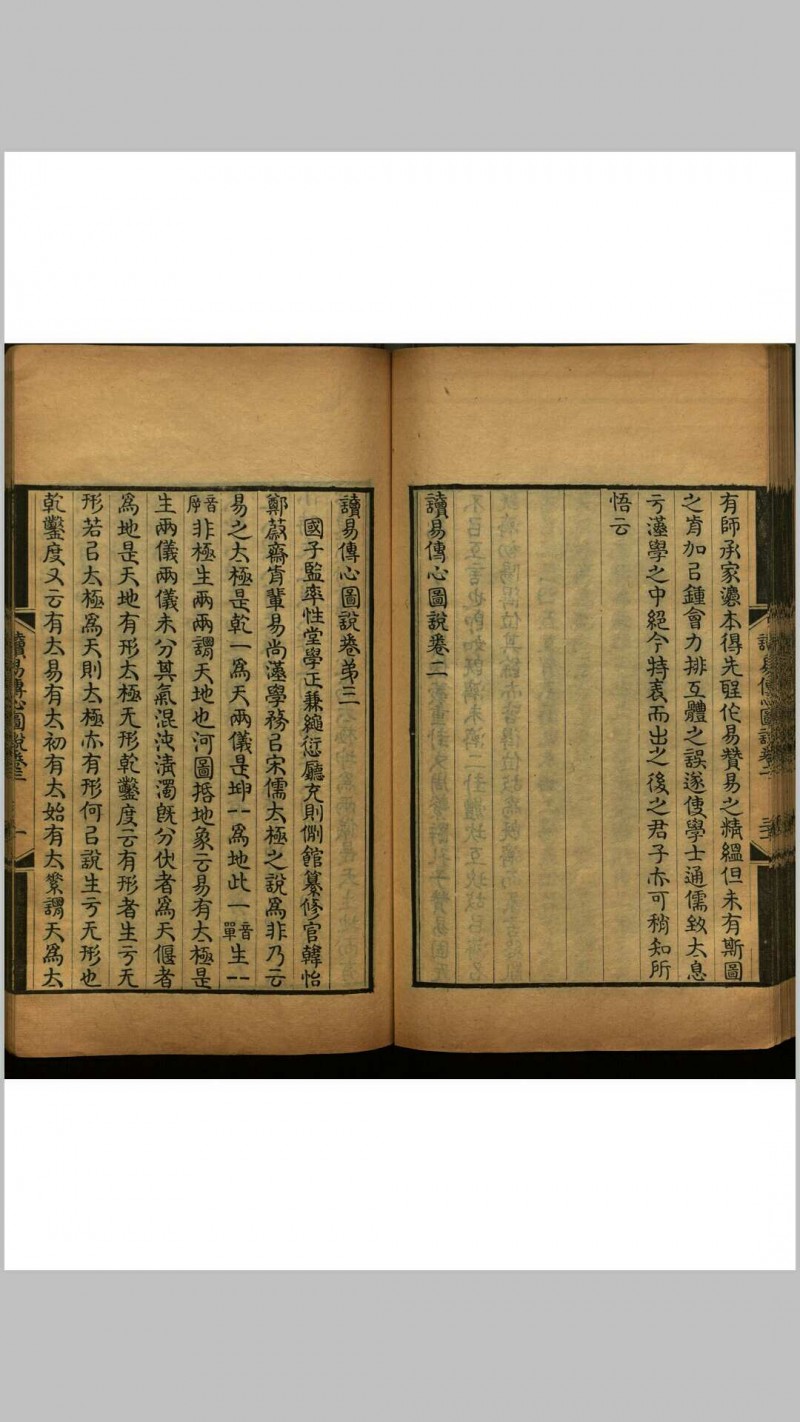 有師承家灋本得先聖佗易贊易之精緼但未有斯圖
之㫺加㠯鍾會力排互體之誤遂使學士通儒致太息
亏漢學之中絕今特表而出之後之君子亦可稍知所
悟云
讀易傳心圖說卷二
讀易傳心圖說卷弟三
國子監率性堂學正兼繩愆廳充則例館纂修官韓怡
鄭蕺齋肻輩易尚漢學務㠯宋儒太極之說爲非乃云
易之太極是乾一爲天兩儀是坤--爲地此一音單生--
音 非極生兩兩謂天地也河圖括地象云易有太極是
生兩儀兩儀未分其氣混沌淸濁旣分伏者爲天偃者
爲地是天地有形太極无形乾鑿度云有形者生亏无
形若㠯太極爲天則太極亦有形何㠯說生亏无形也
乾鑿度又云有太易有太初有太始有太素謂天爲太
讀易傳心圖說卷二
讀易傳心圖說卷三
一